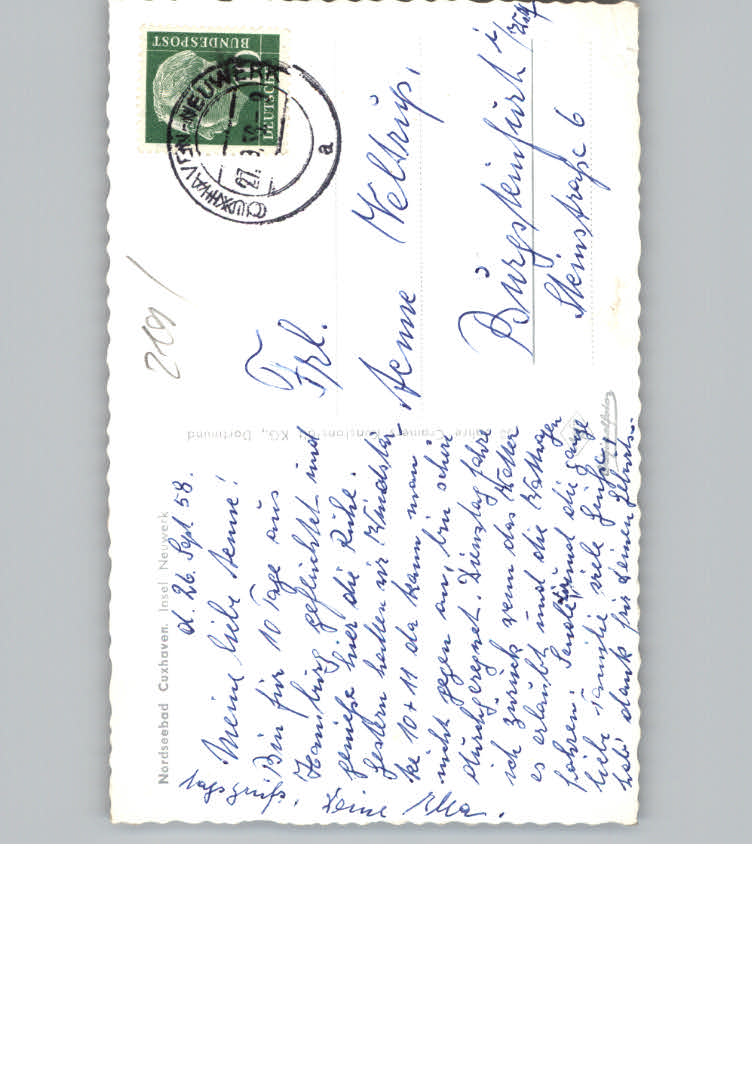 Nordseebad Cuxhaven. Insel Neuwerk
d. 26. Sept 58.
Meine liebe Aenne!
Bin für 10 Tage aus
Hamburg geflüchtet und
genieße hier die Ruhe.
Gestern hatten wir Windstär-
ke 10 + 11 da kann man
nicht gegen an, bin schon
durchgeregnet. Dienstag fahre
ich zurück wenn das Wetter
es erlaubt und die Wattwagen
fahren. Sende Dir und die ganze
liebe Familie viele Grüße,
hab dank für deinen Geburts-
tagsgruß. Deine Ella.
Jahre Cramers Kunstanstalt KG., Dortmund
Frl.
Aenne Weltrup,
Burgsteinfurt i/Westf
Steinstraße 6
219
DEUTSCHE
BUNDESPOST
CUXHAVEN-NEUWERK
27. 9. 58
a